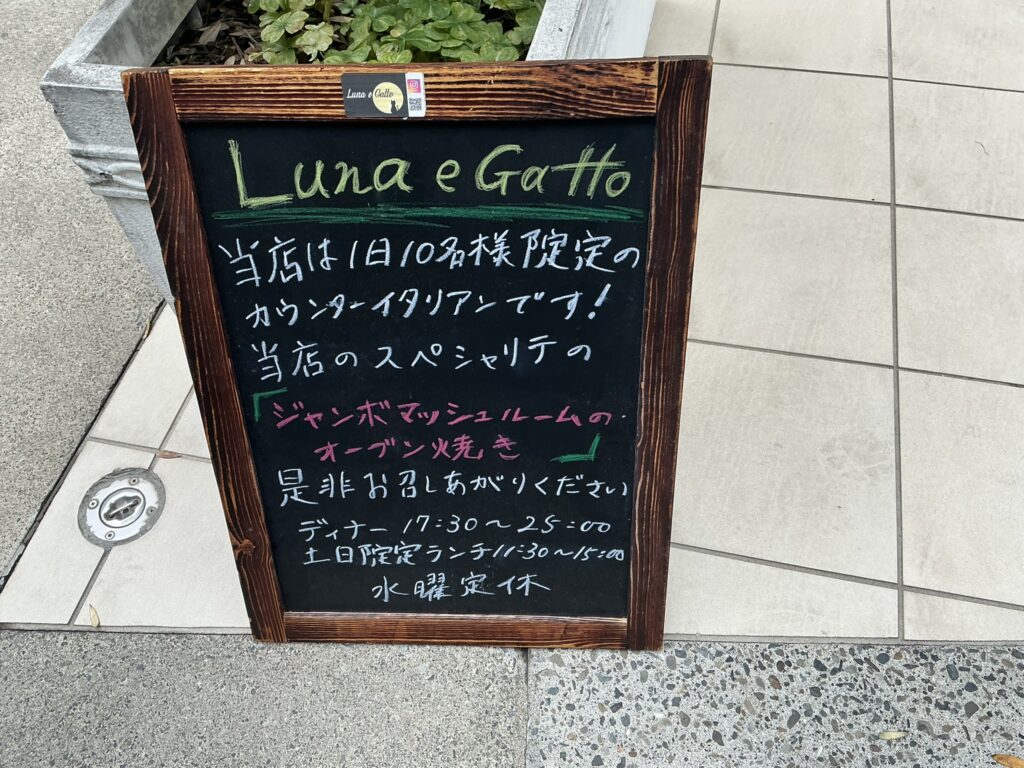 Luna e Gatto
Luna e Gatto
当店は1日10名様限定の
カウンターイタリアンです!
当店のスペシャリテの
「ジャンボマッシュルームの
オーブン焼き」
是非お召しあがりください
ディナー 17:30~25:00
土日限定ランチ11:30~15:00
水曜定休